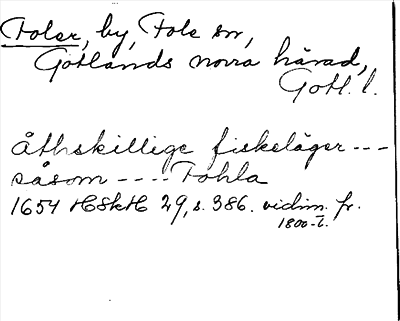 Foler, by, Fole sn,
Gotlands norra härad,
Gotl. l.
åthskillige fiskeläger ---
såsom ---- Fohla
1654 HSkH 29, s. 386. vidim. fr.
1800-t.